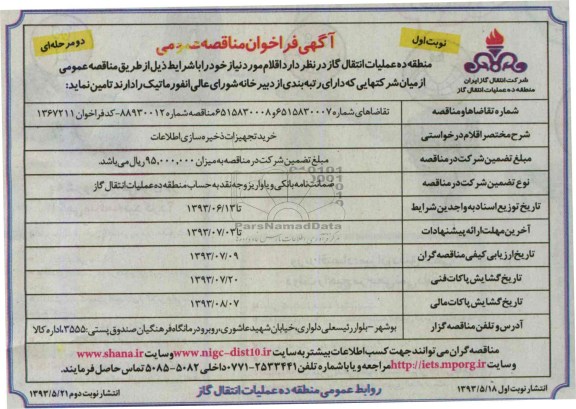 نوبت اول
آگهی فراخوان مناقصه عمومی
دو مرحله‌ای
شرکت انتقال گاز ایران
منطقه ده عملیات انتقال گاز
منطقه ده عملیات انتقال گاز در نظر دارد اقلام مورد نیاز خود را با شرایط ذیل از طریق مناقصه عمومی
از میان شرکتهایی که دارای رتبه بندی از دبیرخانه شورای عالی انفورماتیک را دارند تامین نماید:
شماره تقاضاها و مناقصه
تقاضاهای شماره ۶۵۱۵۸۳۰۰۰۷ و ۶۵۱۵۸۳۰۰۰۸ مناقصه شماره ۸۸۹۳۰۰۱۲-کد فراخوان ۱۳۶۷۲۱۱
شرح مختصر اقلام درخواستی
خرید تجهیزات ذخیره سازی اطلاعات
مبلغ تضمین شرکت در مناقصه
مبلغ تضمین شرکت در مناقصه به میزان ۹۵,۰۰۰,۰۰۰ ریال می باشد.
نوع تضمین شرکت در مناقصه
ضمانت نامه بانکی و یا واریز وجه نقد به حساب منطقه ده عملیات انتقال گاز
تاریخ توزیع اسناد به واجدین شرایط
تا ۱۳۹۳/۰۶/۱۳
آخرین مهلت ارائه پیشنهادات
تا ۱۳۹۳/۰۷/۰۲
تاریخ ارزیابی کیفی مناقصه گران
۱۳۹۳/۰۷/۰۹
تاریخ گشایش پاکات فنی
۱۳۹۳/۰۷/۲۰
تاریخ گشایش پاکات مالی
۱۳۹۳/۰۸/۰۷
آدرس و تلفن مناقصه گزار
بوشهر -بلوار رئیسعلی دلواری،خیابان شهید عاشوری،روبرو درمانگاه فرهنگیان صندوق پستی:۳۵۵۵،اداره کالا
ParsNamadData
مناقصه گران می توانند جهت کسب اطلاعات بیشتر به سایت www.nigc-dist10.ir و سایت www.shana.ir
و سایت http://iets.mporg.ir مراجعه و یا با شماره تلفن ۲۵۳۳۴۴۱-۰۷۷۱ داخلی ۵۰۸۲-۵۰۸۵ تماس حاصل فرمایند.
انتشار نوبت اول ۱۳۹۳/۵/۱۸
روابط عمومی منطقه ده عملیات انتقال گاز
انتشار نوبت دوم ۱۳۹۳/۵/۲۱